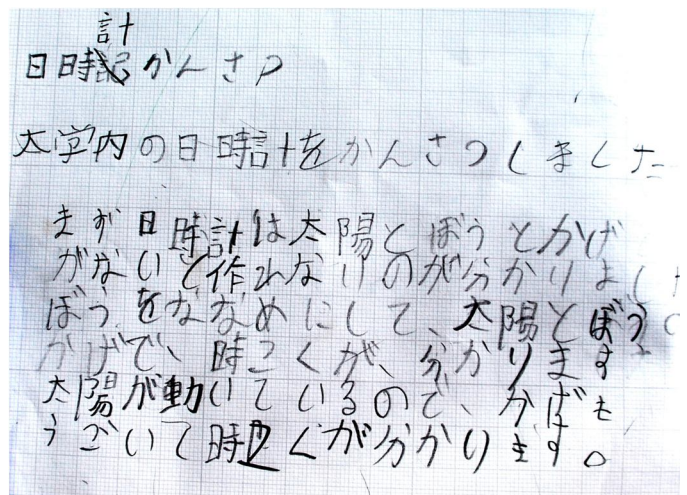 計
日時計かんさつ
大学内の日時計をかんさつしました
まず日時計は太陽とぼうとかげ
がないと作れないのが分かりました
ぼうをななめにして、太陽とぼうの
かげで、時こくが、分かります
太陽が動いているので、かげも
うごいて時こくが分かります。